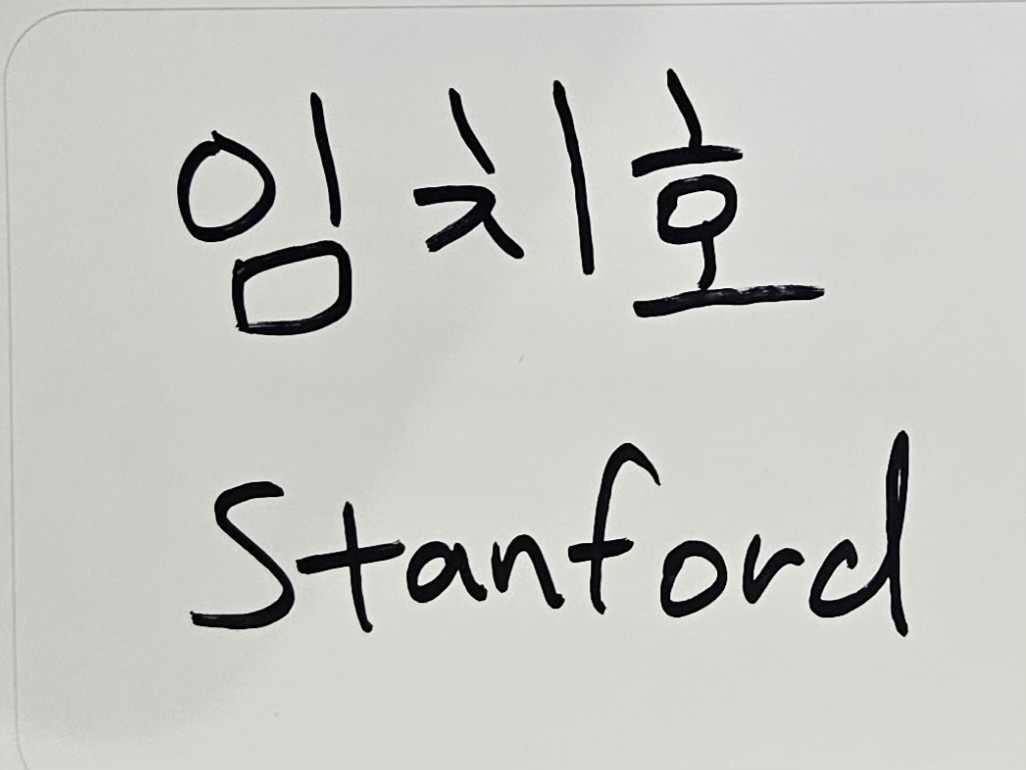 임치호
Stanford